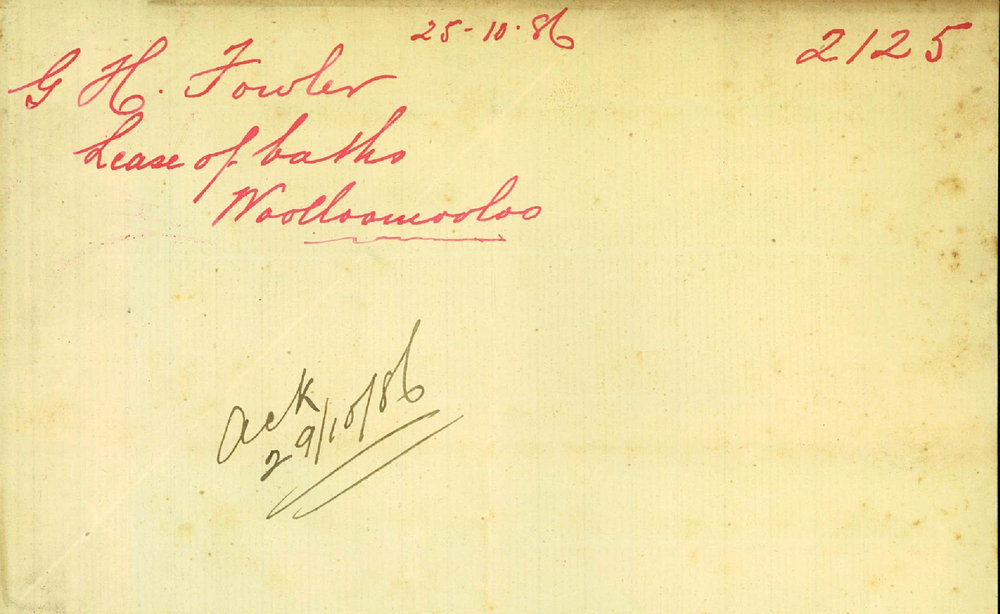 25-10-86
2125
G H. Fowler
Lease of baths
Woolloomooloo
Ack
29/10/86